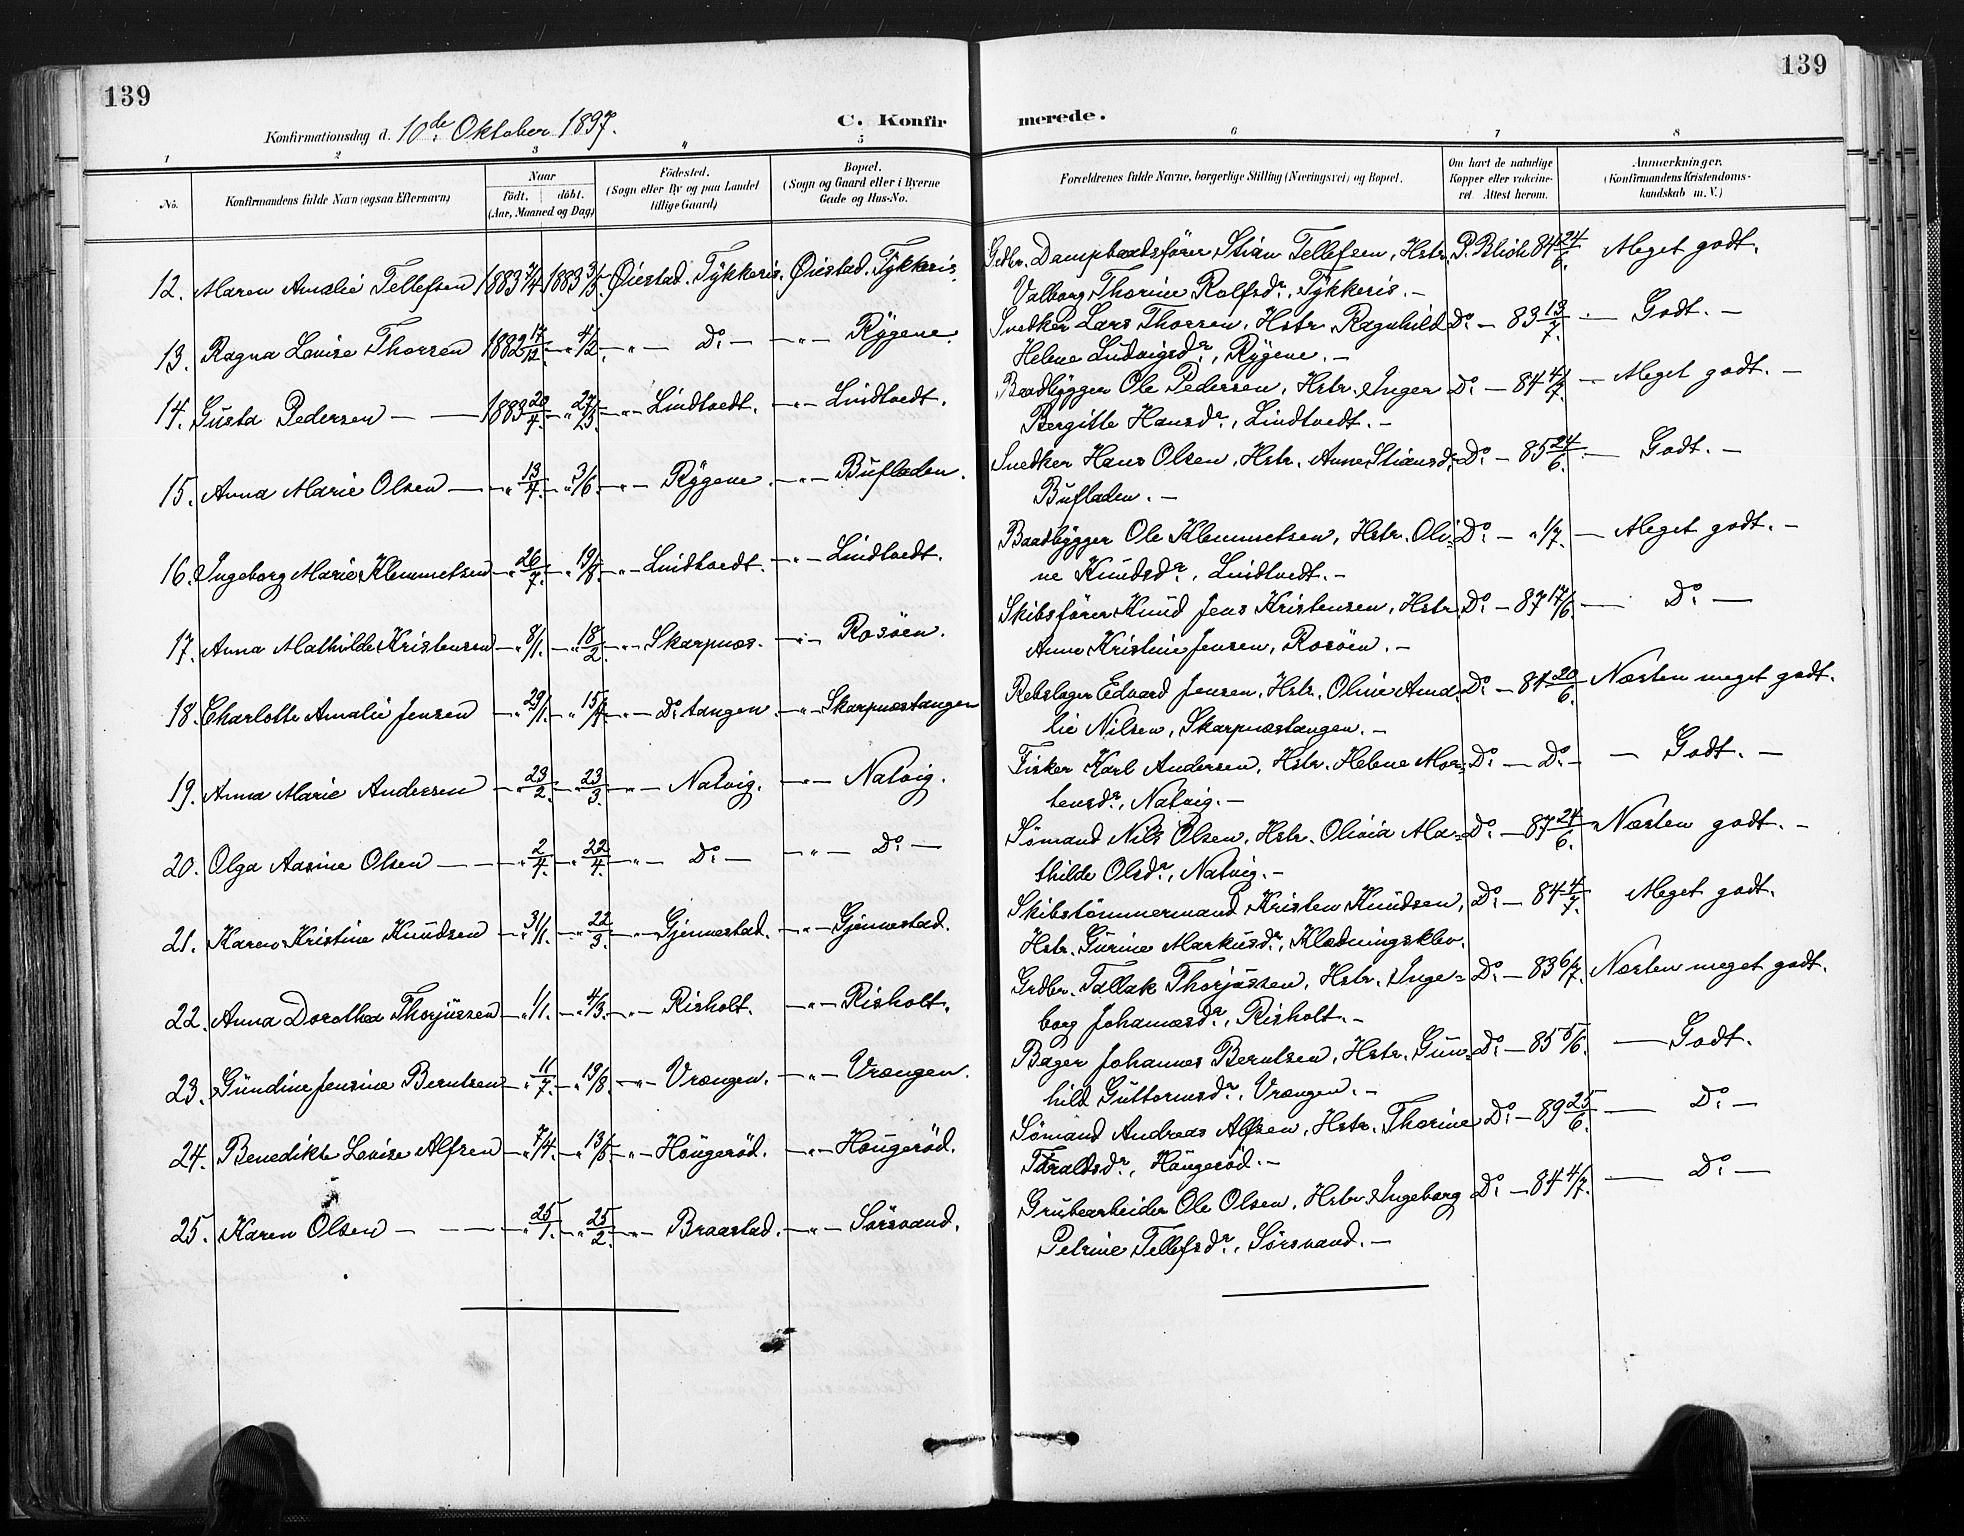 139
139
Konfirmationsdag d. 10de Oktober 1897.
C. Konfirmerede.
1 2 3 4 5 6 7 8
No.
Konfirmandens fulde Navn (ogsaa Efternavn)
Naar
födt. döbt.
(Aar, Maaned og Dag)
Födested.
(Sogn eller By og paa Landet
tillige Gaard)
Bopæl.
(Sogn og Gaard eller i Byerne
Gade og Hus-No.
Forældrenes fulde Navne, borgerlige Stilling (Næringsvei) og Bopæl.
Om havt de naturlige
Kopper eller vakcine-
ret. Attest herom.
Anmærkninger.
(Konfirmandens Kristendoms-
kundskab m. V.)
12. Maren Amalie Tellefsen 1883 1883 Öiestad. Tykkeris. Öiestad. Tykkeris. Grdbr. Dampbaadsförer Stian Tellefsen, Hstr. P. Blich 84 24/6. Meget godt.
Valborg Thorine Rolfsdr., Tykkeris. —
13. Ragna Lovise Thorsen 1882 17/12 — " 4/2 — " — Do. — — " — Rygene. Snedker Lars Thorsen, Hstr. Ragnhild Do. — 83 13/7. — Godt. —
Helene Ludvigsdr., Rygene. —
14. Gusta Pedersen — — 1883 20/4. — " — " — Lindtvedt. — " — Lindtvedt. Baadbygger Ole Pedersen, Hstr. Inger Do. — 84 4/7. — Meget godt. —
Bergitte Hansdr., Lindtvedt. —
15. Anna Marie Olsen — — " 13/4. — " 3/6. — " — Rygene. — " — Bufladen. Snedker Hans Olsen, Hstr. Anne Stiansdr. Do. — 85 24/6. — Godt. —
Bufladen. —
16. Ingeborg Marie Klemmetsen — " 26/7. — " 19/8. — " — Lindtvedt. — " — Lindtvedt. Baadbygger Ole Klemmetsen, Hstr. Oli- Do. — " 1/7. — Meget godt. —
ne Knudsdr., Lindtvedt. —
17. Anna Mathilde Kristensen — " 8/1. — " 18/2. — " — Skarpnæs. — " — Rosöen. Skibsförer Knud Jens Kristensen, Hstr. Do. — 87 17/6. — Do. —
Anne Kristine Jensen, Rosöen. —
18. Charlotte Amalie Jensen — " 29/1. — " 15/4. — " — Do. tangen. — " — Skarpnæstangen Rebslager Edvard Jensen, Hstr. Oline Ama- Do. — 84 20/6. Næsten meget godt.
lie Nilsen, Skarpnæstangen. —
19. Anna Marie Andersen — " 23/2. — " 23/3. — " — Natvig. — " — Natvig. Fisker Karl Andersen, Hstr. Helene Mor- Do. — Do. — — Godt. —
tensdr., Natvig. —
20. Olga Aasine Olsen — — " 2/4. — " 22/4. — " — Do. — — " — Do. — Sömand Nils Olsen, Hstr. Olivia Ma- Do. — 87 24/6. Næsten godt. —
thilde Olsdr., Natvig. —
21. Karen Kristine Knudsen — " 31/1. — " 22/3. — " — Gjennestad. — " — Gjennestad. Skibstömmermand Kristen Knudsen, Do. — 84 4/7. Meget godt.
Hstr. Gurine Markusdr., Klædningsklev.
22. Anna Dorothea Thorjussen — " 1/1. — " 4/3. — " — Risholt. — " — Risholt. Grdbr. Tallak Thorjussen, Hstr. Inge- Do. — 83 6/7. Næsten meget godt.
borg Johannesdr., Risholt. —
23. Gundine Jensine Berntsen — " 11/7. — " 19/8. — " — Vrængen. — " — Vrængen. Bager Johannes Berntsen, Hstr. Gun- Do. — 85 — Godt.
hild Guttormsdr., Vrængen. —
24. Benedikte Lovise Alfsen — " 7/4. — " — " — Hougeröd. — " — Hougeröd. Sömand Andreas Alfsen, Hstr. Thorine Do. — 89 25/6. — Do. —
Taraldsdr., Hougeröd. —
25. Karen Olsen — — " 25/1. — " 25/2. — " — Braastad. — " — Sörsvand. Grubearbeider Ole Olsen, Hstr. Ingeborg Do. — 84 4/7. — Do. —
Petrine Tellefsdr., Sörsvand. —